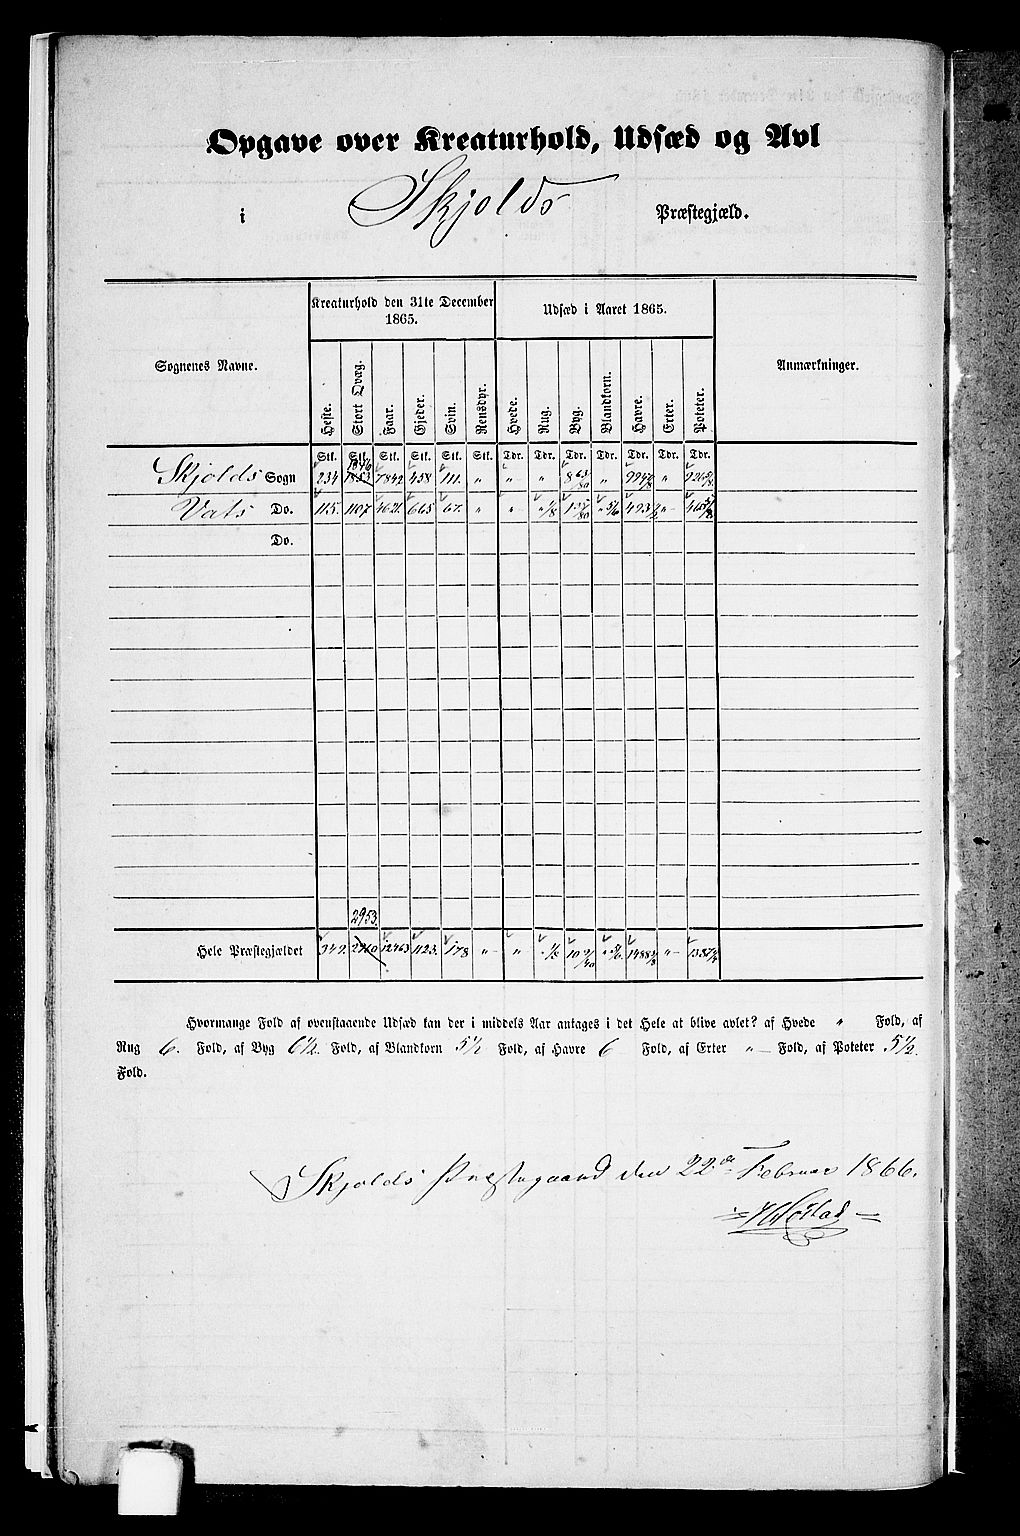 Opgave over Kreaturhold, Udsæd og Avl
i Skjolds Præstegjæld.
Sognenes Navne.
Kreaturhold den 31te December 1865.
Udsæd i Aaret 1865.
Anmærkninger.
Heste. Stort Qvæg. Faar. Gjeder. Svin. Rensdyr. Hvede. Rug. Byg. Blandkorn. Havre. Erter. Poteter.
Stk. Stk. Stk. Stk. Stk. Stk. Tdr. Tdr. Tdr. Tdr. Tdr. Tdr. Tdr.
1846
Skjolds Sogn 234 1853 7842 458 111. " " " 8 63/80 " "
Vats Do. 115. 1107 4621. 665 67. " " " 1/8 " 5/6 "
Do.
2953.
Hele Præstegjældet 349. 2960 12463 1123. 178 " " " 1/8 " 5/6 "
Hvormange Fold af ovenstaaende Udsæd kan der i middels Aar antages i det Hele at blive avlet? af Hvede " Fold, af
Rug 6. Fold, af Byg 6 1/2. Fold, af Blandkorn 5 1/2 Fold, af Havre 6 Fold, af Erter " Fold, af Poteter 5 1/2
Fold.
Skjolds Præstegaard den 22de Februar 1866.